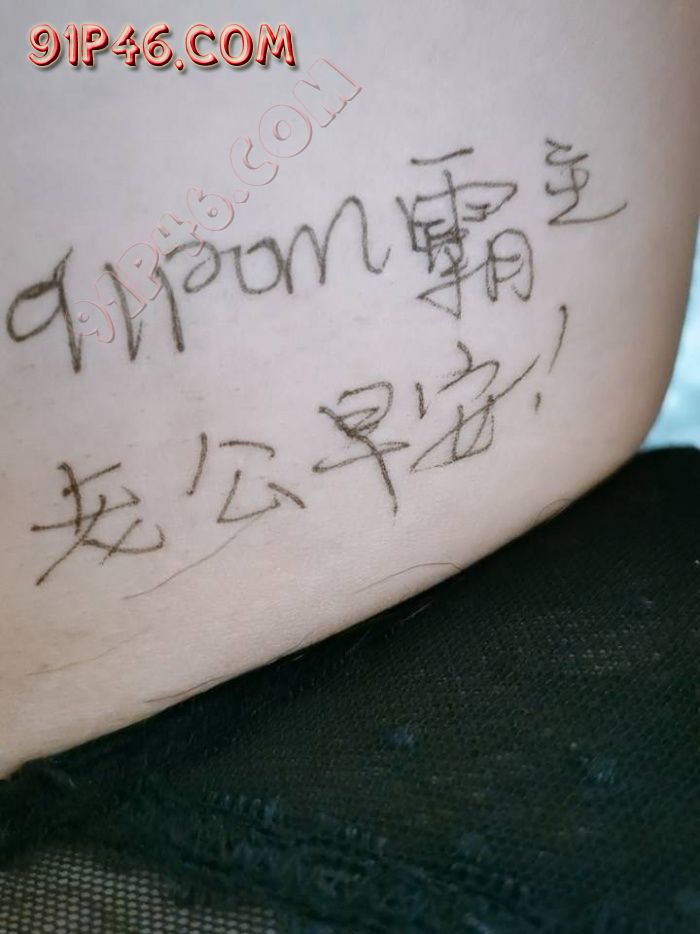 91P46.COM
91P46.COM
91pom霸主
老公早安!